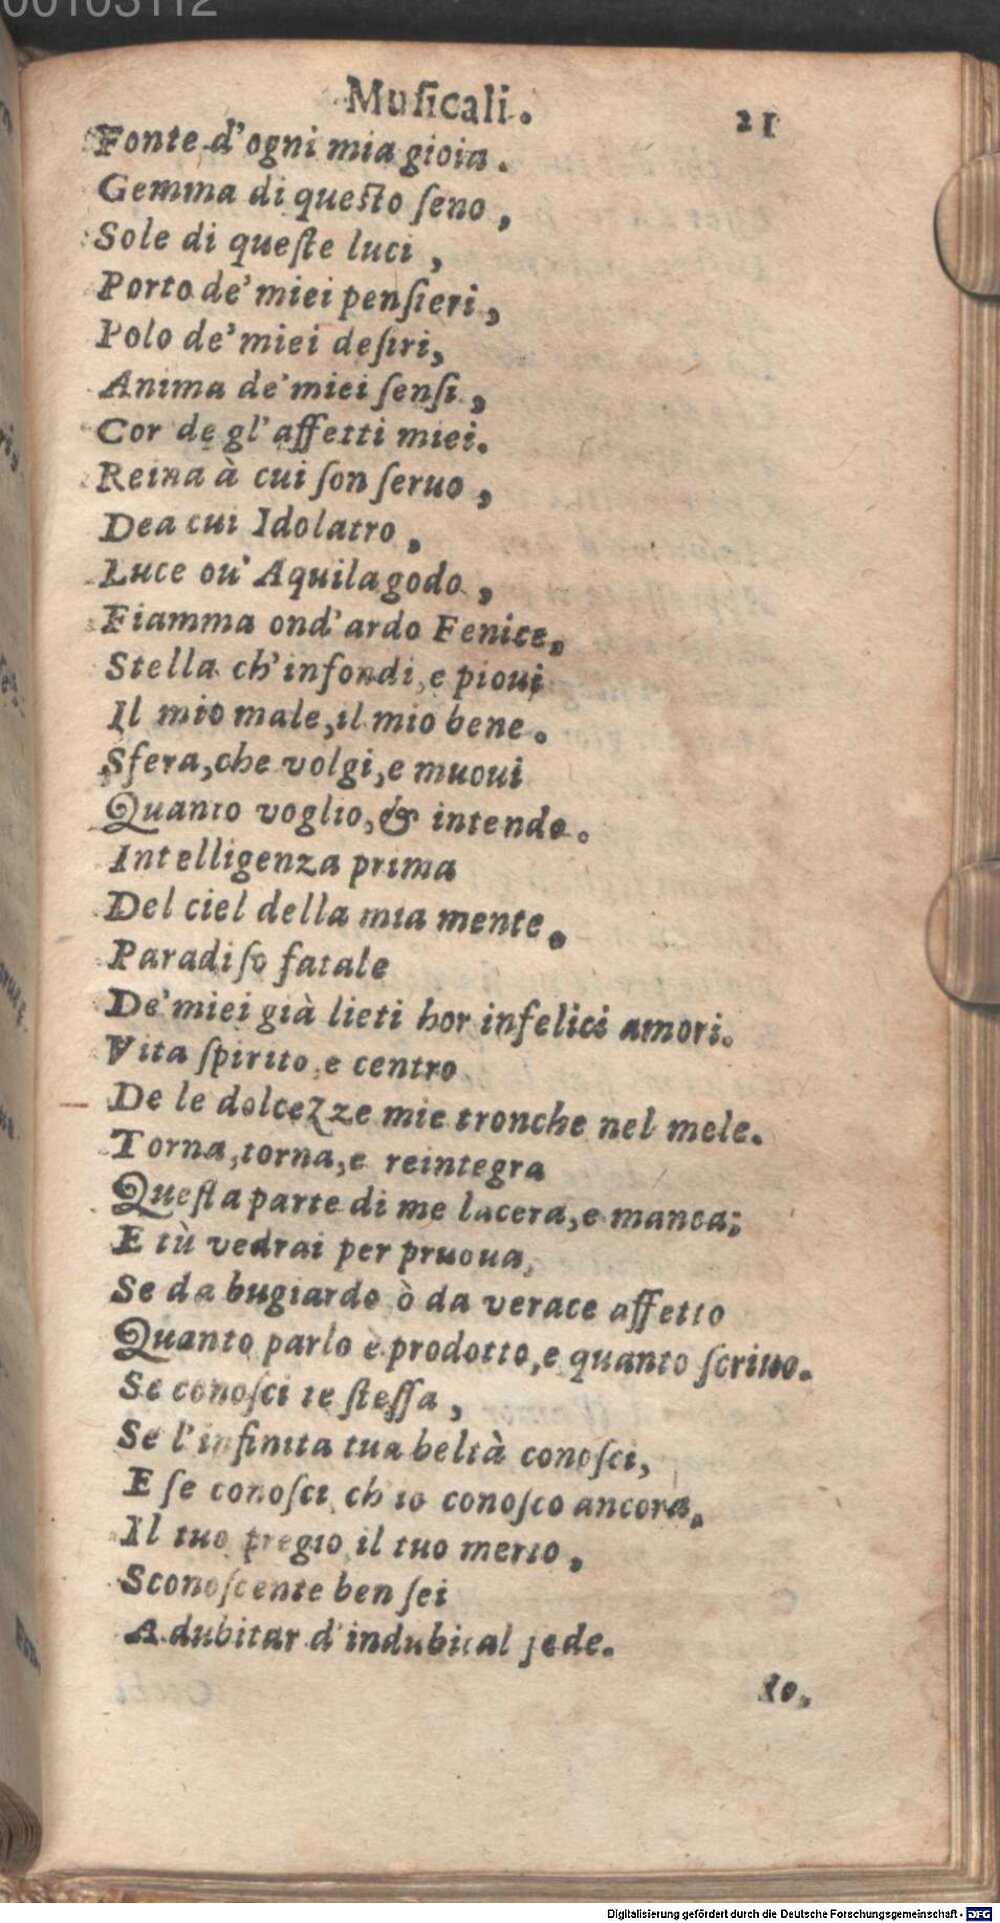 00103112
Muſicali. 21
Fonte d'ogni mia gioia.
Gemma di queſto ſeno,
Sole di queſte luci,
Porto de' miei penſieri,
Polo de' miei deſiri,
Anima de' miei ſenſi,
Cor de gl' affetti miei.
Reina à cui ſon ſeruo,
Dea cui Idolatro,
Luce ou' Aquila godo,
Fiamma ond' ardo Fenice,
Stella ch' infondi, e pioui
Il mio male, il mio bene.
Sfera, che volgi, e muoui
Quanto voglio, & intendo.
Intelligenza prima
Del ciel della mia mente.
Paradiſo fatale
De' miei già lieti hor infelici amori.
Vita ſpirito, e centro
De le dolcezze mie tronche nel mele.
Torna, torna, e reintegra
Queſta parte di me lacera, e manca;
E tù vedrai per pruoua,
Se da bugiardo ò da verace affetto
Quanto parlo è prodotto, e quanto ſcriuo.
Se conoſci te ſteſſa,
Se l' infinita tua beltà conoſci,
E ſe conoſci ch io conoſco ancora,
Il tuo pregio il tuo merto,
Sconoſcente ben ſei
A dubitar d' indubital fede.
Io,
Digitalisierung gefördert durch die Deutsche Forschungsgemeinschaft - DFG